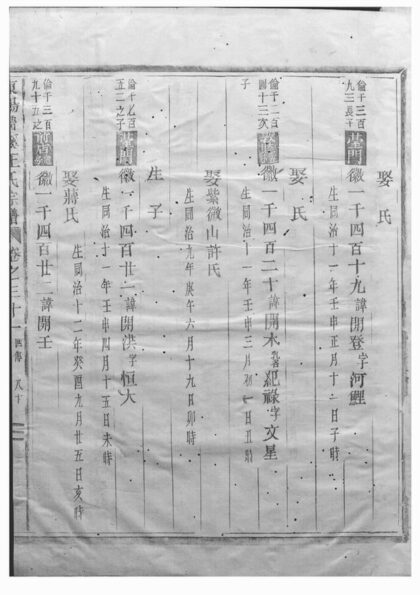 倫千三百
九三長子
徽一千四百十九諱開登字河鯉
生同治十一年壬申正月十一日子時
娶 氏
倫千二百
四十三次
子
徽一千四百二十諱開木 紀祿字文星
生同治十一年壬申三月初一日丑時
娶 氏
生同治九年庚午六月十九日卯時
娶紫微山許氏
倫千乙百
五二之子
徽一千四百廿一諱開洪字恒大
生同治十一年壬申四月十五日未時
生子
倫千三百
九十五之
徽一千四百廿二諱開壬
生同治十二年癸酉九月廿五日亥時
娶蔣氏
王氏宗譜 卷之三十一 八十